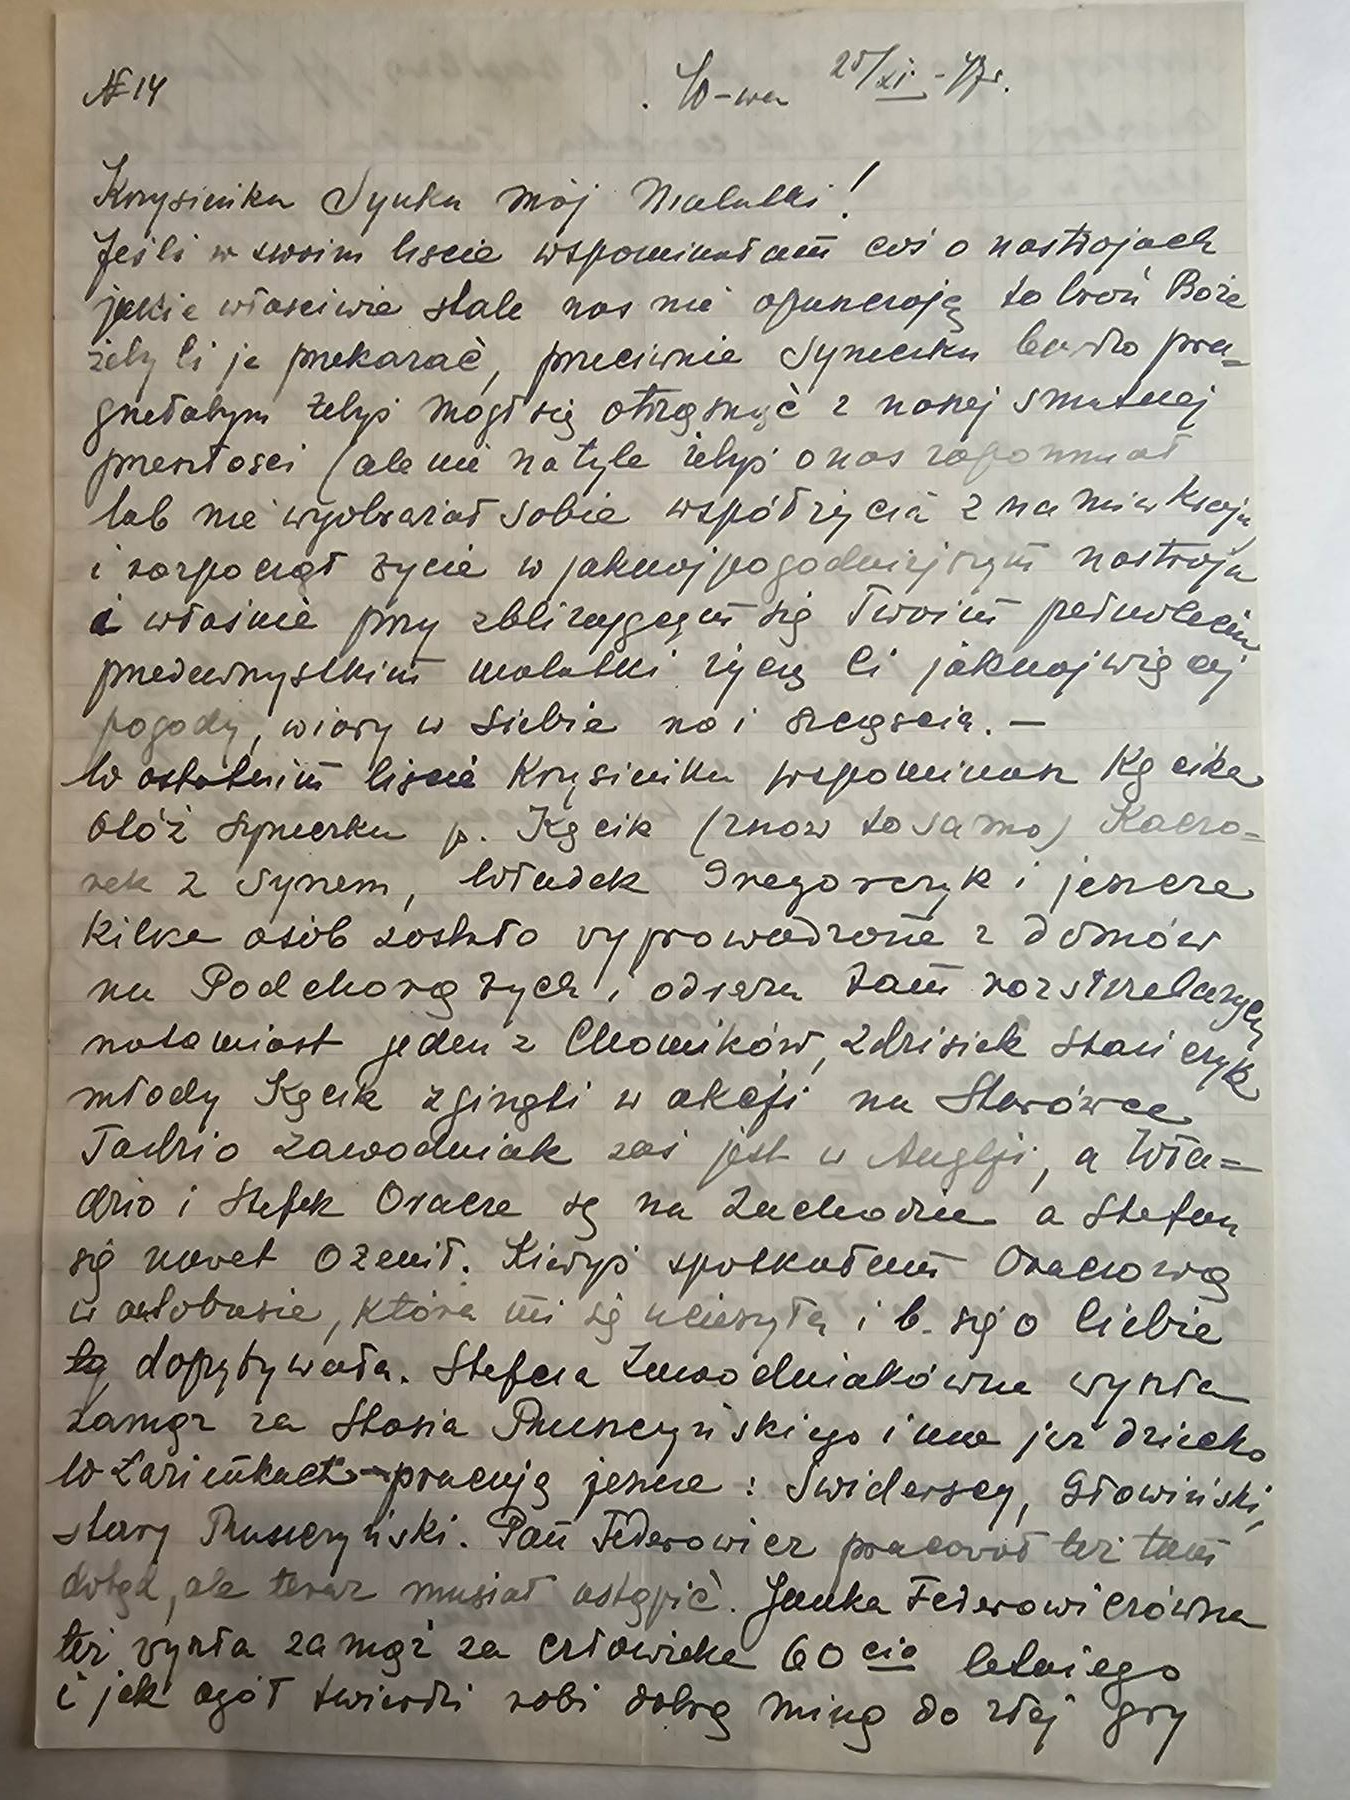 № 14
W-wa 25/XI - 47 r.
Krysieńku Synku mój Malutki!
Jeśli w swoim liscie wspominałam coś o nastrojach
jakie właściwie stale nas nie opuszczają to broń Boże
żeby Ci je przekazać, przeciwnie Syneczku bardzo pra=
gnełabym żebyś mógł się otrząsnąć z naszej smutnej
przeszłosci (ale nie na tyle żebyś o nas zapomniał
lub nie wyobrażał sobie współżycia z nami w Kraju
i rozpoczął życie w jaknajpogodniejszym nastroju
i właśnie przy zbliżającym się Twoim pełnoleciu
przedewszystkim malutki życzę Ci jaknajwięcej
pogody, wiary w siebie no i szczęścia. —
W ostatnim liscie Krysieńku wspominasz Kęcika
Otóż Syneczku p. Kęcik (znow to samo) Kaczo=
rek z Synem, Władek Gregorczyk i jeszcze
kilka osób zostało wyprowadzone z domów
na Podchorążych i odrazu tam rozstrzelanych
natomiast jeden z Chomików, Zdzisiek Stańczyk
młody Kęcik zginęli w akcji na Starówce
Tadzio Zawodniak zaś jest w Anglji, a Wła=
dzio i Stefek Oracze są na Zachodzie a Stefan
się nawet ożenił. Kiedyś spotkałam Oraczową
w autobusie, która mi się ucieszyła i b. się o Ciebie
dopytywała. Stefcia Zawodniakówna wyszła
zamąż za Stasia Pruszczyńskiego i ma już dziecko
W Łazienkach pracują jeszcze: Swiderscy, Głowiński,
stary Pruszczyński. Pan Federowicz pracował też tam
dotąd, ale teraz musiał ustąpić. Janka Federowiczówna
też wyszła zamąż za człowieka 60 cio letniego
i jak ogół twierdzi robi dobrą minę do złej gry